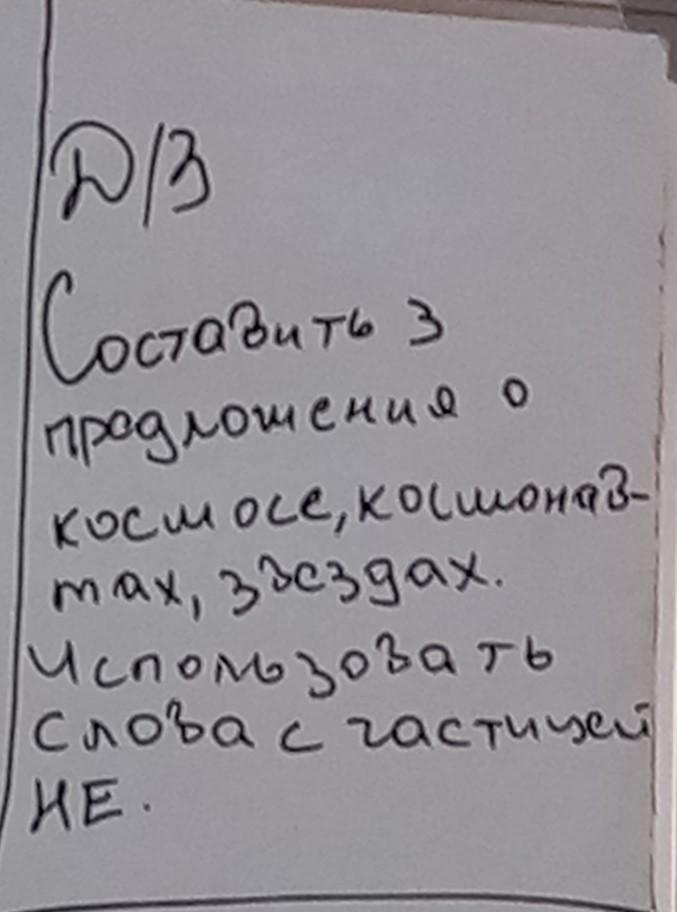 Д/З
Составить 3
предложения о
космосе, космонав-
тах, звездах.
Использовать
слова с частицей
НЕ.